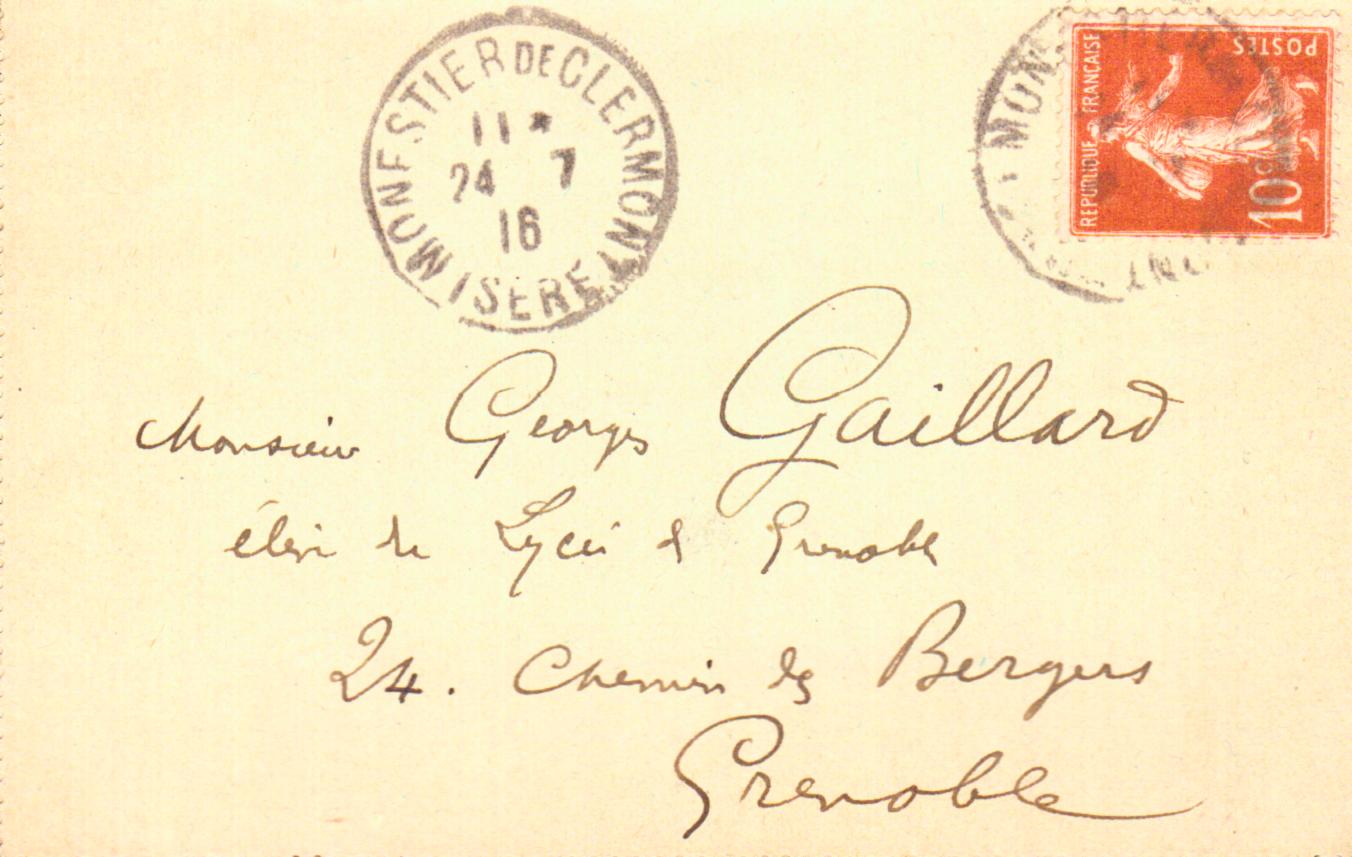 MONESTIER DE CLERMONT
11*
24 7
16
ISÈRE
MON
NT
REPUBLIQUE FRANÇAISE
POSTES
10c
Monsieur Georges Gaillard
élève du Lycée de Grenoble
24. Chemin des Bergers
Grenoble